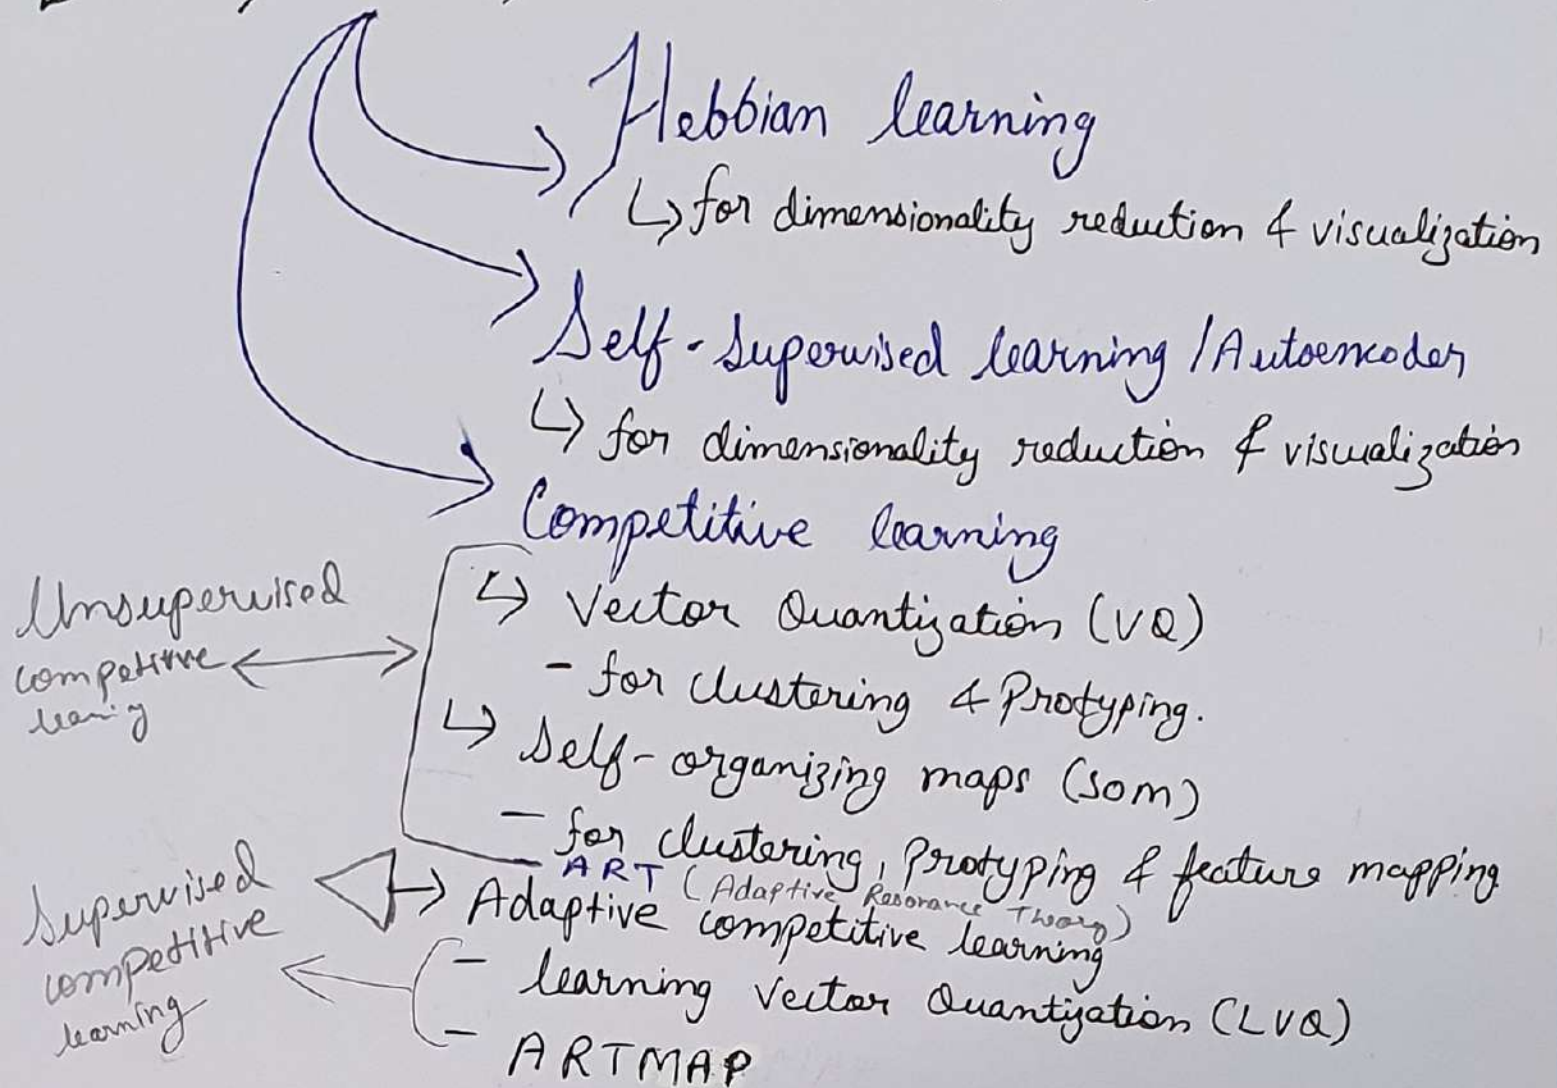 Hebbian learning
↳ for dimensionality reduction & visualization
Self-Supervised learning / Autoencoder
↳ for dimensionality reduction & visualization
Competitive learning
Unsupervised
competitive
learning
↳ Vector Quantization (VQ)
- for clustering & Protyping.
↳ Self-organizing maps (SOM)
- for clustering, Protyping & feature mapping
- ART (Adaptive Resonance Theory)
Supervised
competitive
learning
→ Adaptive competitive learning
- learning Vector Quantization (LVQ)
- ARTMAP